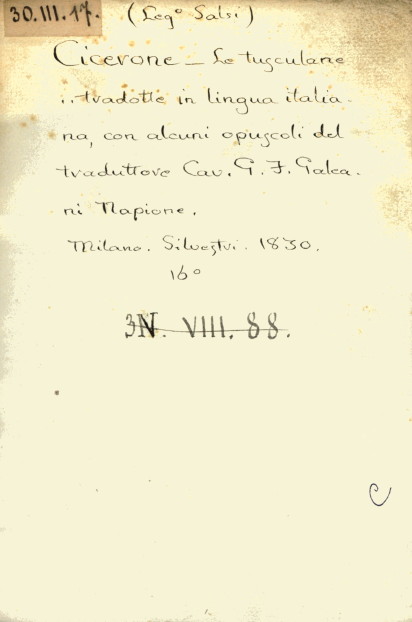 30.III.17. (Leg° Salsi)
Cicerone - Le tusculane
..tradotte in lingua italia-
na, con alcuni opuscoli del
traduttore Cav. G. F. Galea-
ni Napione.
Milano. Silvestri. 1830.
16°
3N. VIII. 88.
C